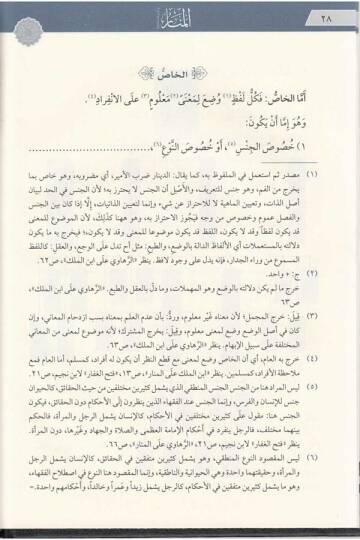 ٢٨
المنار
الخاص
أَمَّا الخَاصُّ: فَكُلُّ لَفْظٍ (١) وُضِعَ لِمَعْنًى (٢) مَعْلُومٍ (٣) عَلَى الانْفِرَادِ (٤).
وَهُوَ إِمَّا أَنْ يَكُونَ:
١) خُصُوصَ الجِنْسِ (٥)، أَوْ خُصُوصَ النَّوْعِ (٦)،
(١) مصدر ثم استعمل في الملفوظ به، كما يقال: الدينار ضرب الأمير، أي مضروبه، وهو خاص بما
يخرج من الفم، وهو جنس للتعريف، والأصل أن الجنس لا يحترز به؛ لأن الجنس في الحد لبيان
أصل الذات، وتعيين الماهية لا للاحتراز عن شيء وإنما لتعيين الذاتيات، إلَّا إذا كان بين الجنس
والفصل عموم وخصوص من وجه فيَجُوز الاحتراز به، وهو ههنا كذلك، لأن الموضوع للمعنى
قد يكون لفظاً وقد لا يكون، اللفظ قد يكون موضوعا للمعنى وقد لا يكون؛ فيخرج به ما يكون
دلالته بالمستعملات أي الألفاظ الدالة بالوضع، والطبع: مثل أح تدل على الوجع، والعقل: كاللفظ
المسموع من وراء الجدار، فإنه يدل على وجود لافظ. ينظر «الرهاوي على ابن الملك»، ص٦٢.
(٢) ج: + واحد.
خرج ما لم يكن دلالته بالوضع وهو المهملات، وما دلّ بالعقل والطبع. «الرّهاوي على ابن الملك»،
ص٦٣.
(٣) قيل: خرج المجمل؛ لأن معناه غير معلوم، وردّ: بأن عدم العلم بمعناه بسبب ازدحام المعاني، وإن
كان في أصل الوضع وضع لمعنى معلوم، وقيل: يخرج المشترك؛ لأنه موضوع لمعنى من المعاني
المختلفة على سبيل الإبهام. ينظر «الرّهاوي على ابن الملك»، ص٦٣.
(٤) خرج به العام، أي أن الخاص وضع لمعنى مع قطع النظر أن يكون له أفراد، كمسلم، أما العام فمع
ملاحظة الأفراد، كمسلمين. ينظر «ابن الملك على المنار»، ص١٣، «فتح الغفار» لابن نجيم، ص٢١.
(٥) ليس المراد هنا من الجنس الجنس المنطقي الذي يشمل كثيرين مختلفين من حيث الحقائق، كالحيوان
جنس للإنسان والفرس، وإنما الجنس عند الفقهاء الذين ينظرون إلى الأحكام دون الحقائق، فيكون
الجنس هنا: مقول على كثيرين مختلفين في الأحكام، كالإنسان يشمل الرجل والمرأة، فالحكم
بينهما مختلف، فالرجل ينفرد في أحكام الإمامة العظمى والصلاة والجهاد وغيرها، دون المرأة.
ينظر «فتح الغفار» لابن نجيم، ص٢١، «الرّهاوي على المنار»، ص٦٢.
(٦) ليس المقصود النوع المنطقي، وهو يشمل كثيرين متفقين في الحقائق، كالإنسان يشمل الرجل
والمرأة، وحقيقتهما واحدة وهي الحيوانية والناطقية، وإنما المقصود هنا النوع في اصطلاح الفقهاء،
وهو ما يشمل كثيرين متفقين في الأحكام، كالرجل يشمل زيداً وعمراً وخالداً، وأحكامهم واحدة.=